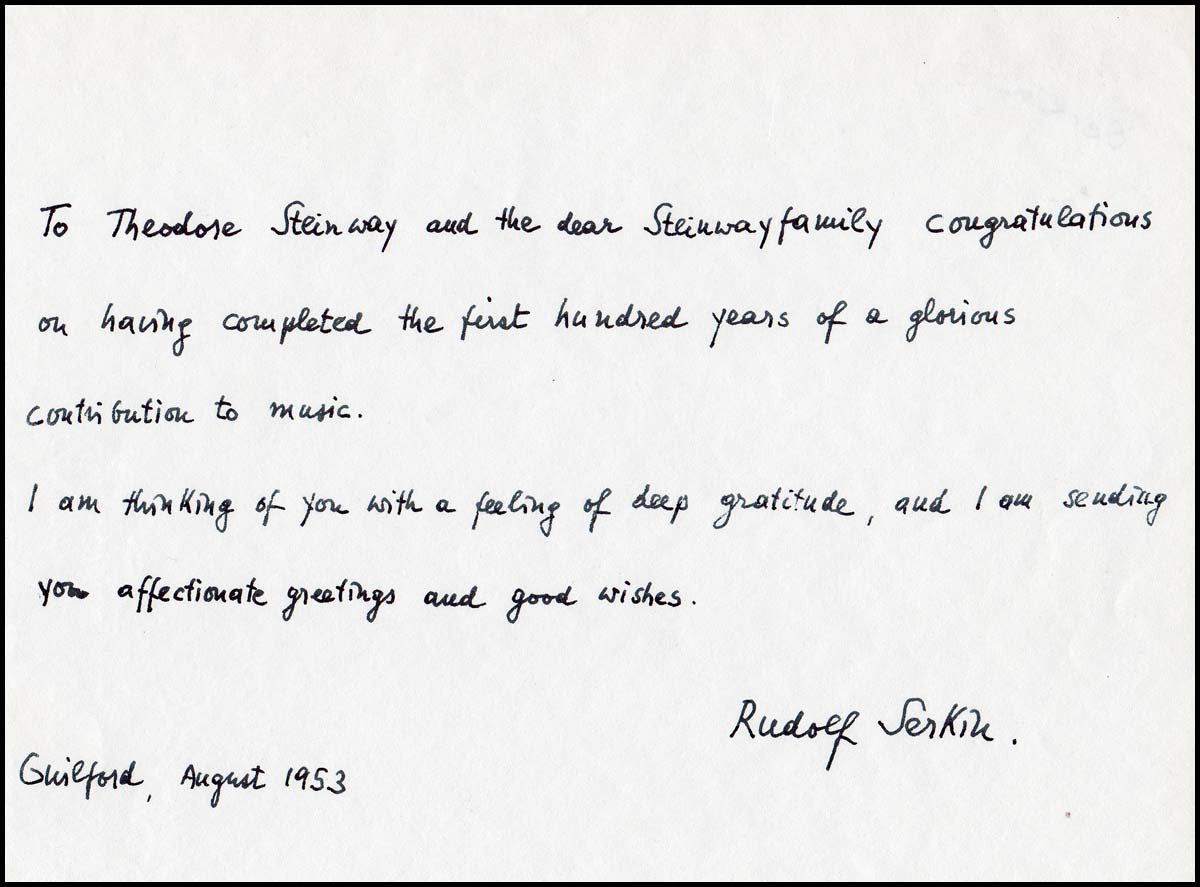 To Theodore Steinway and the dear Steinwayfamily congratulations
on having completed the first hundred years of a glorious
contribution to music.
I am thinking of you with a feeling of deep gratitude, and I am sending
you affectionate greetings and good wishes.
Rudolf Serkin.
Guilford, August 1953